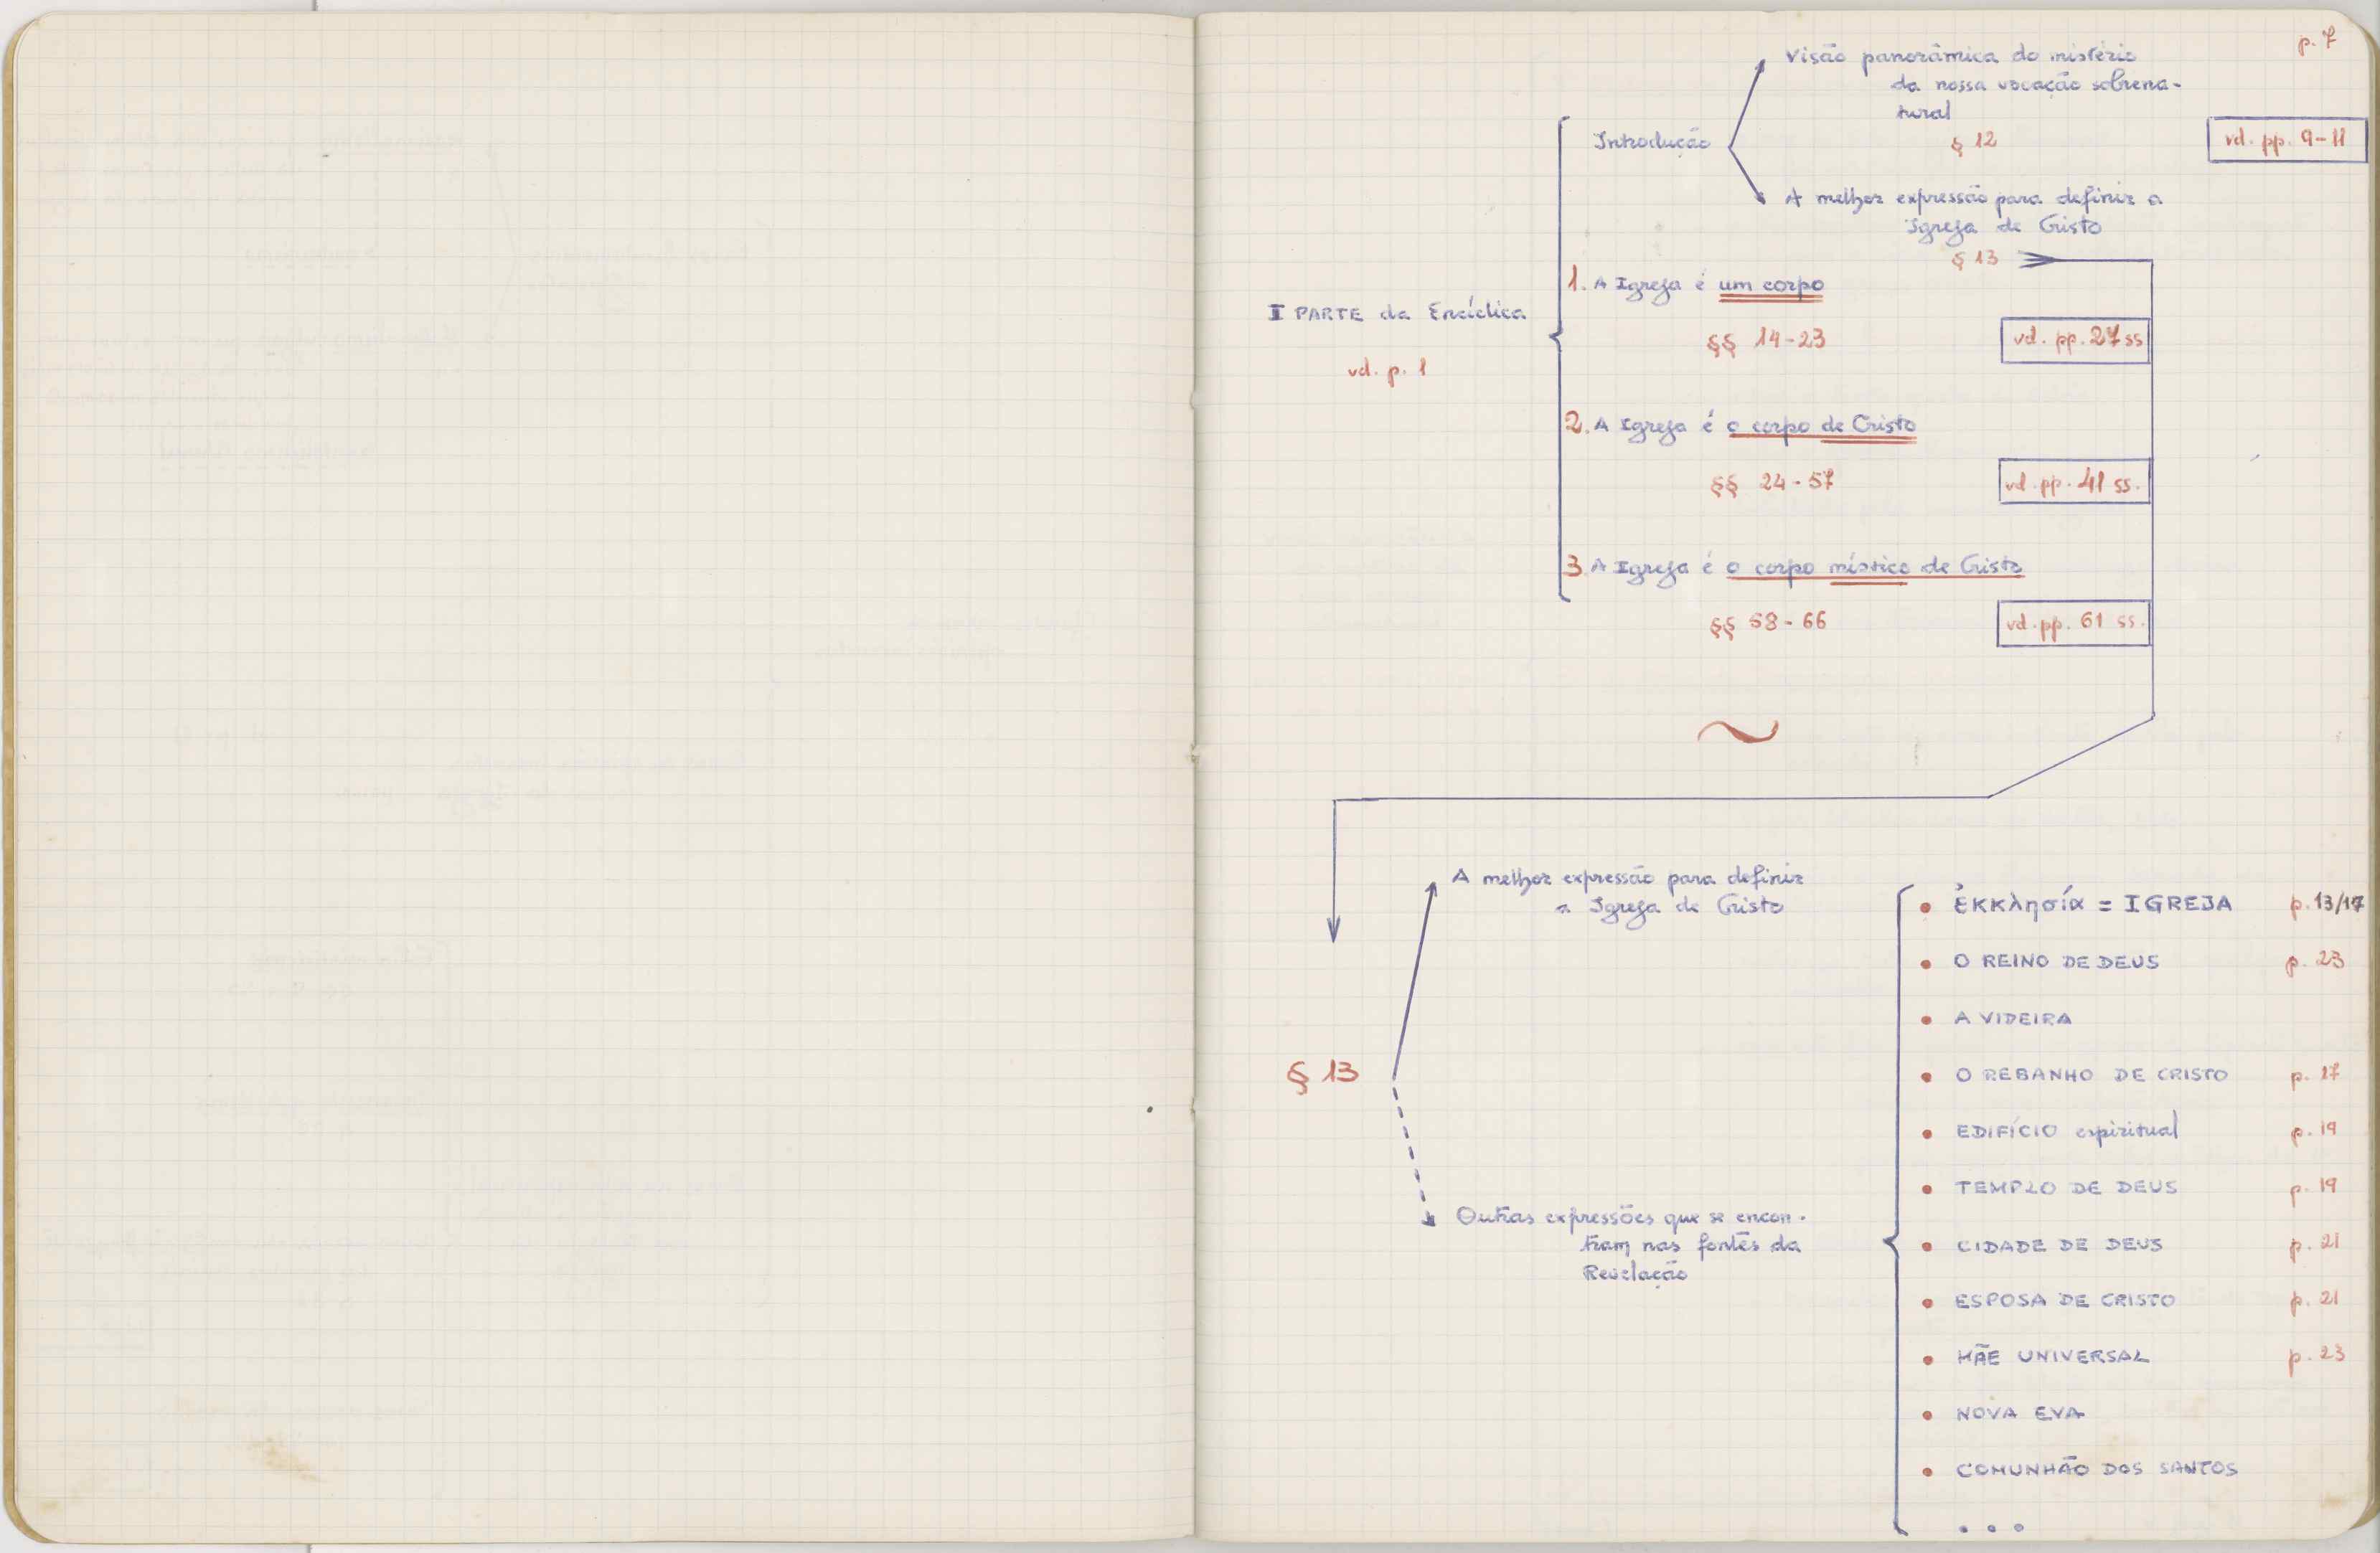 p. 7
Visão panorâmica do mistério
da nossa vocação sobrena-
tural
Introdução
§ 12
vd. pp. 9-11
A melhor expressão para definir a
Igreja de Cristo
§ 13
1. A Igreja é um corpo
I PARTE da Encíclica
§§ 14-23
vd. pp. 27 ss
vd. p. 1
2. A Igreja é o corpo de Cristo
§§ 24-57
vd. pp. 41 ss.
3. A Igreja é o corpo místico de Cristo
§§ 58-66
vd. pp. 61 ss.
A melhor expressão para definir
a Igreja de Cristo
• ἐκκλησία = IGREJA p. 13/17
• O REINO DE DEUS p. 23
• A VIDEIRA
§ 13
• O REBANHO DE CRISTO p. 17
• EDIFÍCIO espiritual p. 19
• TEMPLO DE DEUS p. 19
Outras expressões que se encon-
tram nas fontes da
Revelação
• CIDADE DE DEUS p. 21
• ESPOSA DE CRISTO p. 21
• MÃE UNIVERSAL p. 23
• NOVA EVA
• COMUNHÃO DOS SANTOS
...